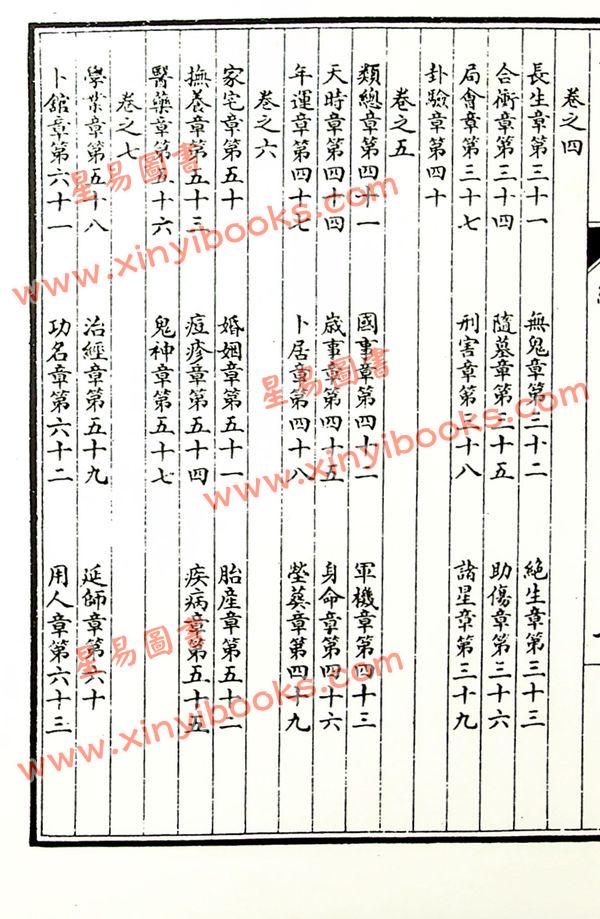 卷之四
長生章第三十一 無鬼章第三十二 絕生章第三十三
合衝章第三十四 隨墓章第三十五 助傷章第三十六
局會章第三十七 刑害章第三十八 諸星章第三十九
卦驗章第四十
卷之五
類總章第四十一 國事章第四十二 軍機章第四十三
天時章第四十四 歲事章第四十五 身命章第四十六
年運章第四十七 卜居章第四十八 塋葬章第四十九
卷之六
家宅章第五十 婚姻章第五十一 胎產章第五十二
撫養章第五十三 痘疹章第五十四 疾病章第五十五
醫藥章第五十六 鬼神章第五十七
卷之七
學業章第五十八 治經章第五十九 延師章第六十
卜館章第六十一 功名章第六十二 用人章第六十三
星易圖書
www.xinyibooks.com
星易圖書
www.xinyibooks.com
星易圖書
www.xinyibooks.com